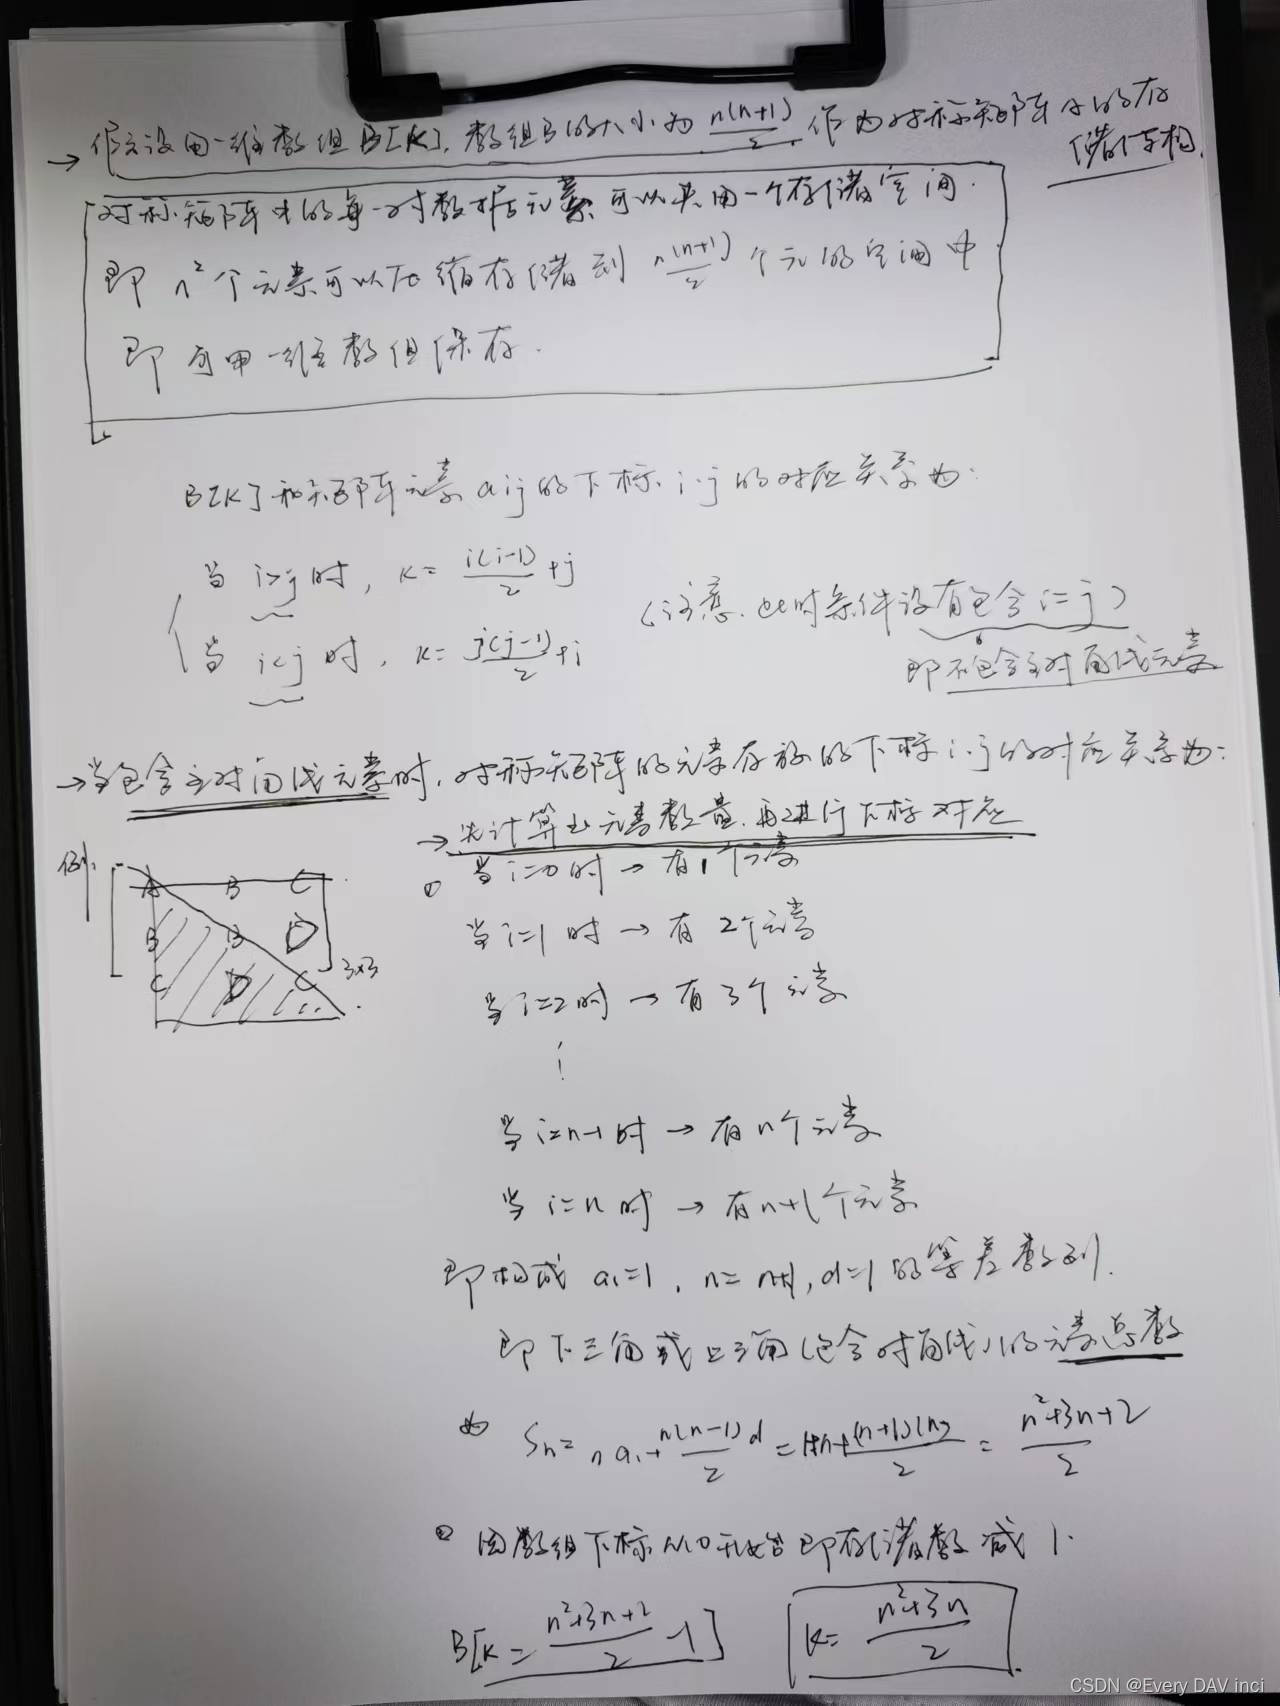 → 假设用一维数组B[K],数组B的大小为 n(n+1)/2 作为对称矩阵A的存
储结构.
对称矩阵中的每一对数据元素可以共用一个存储空间.
即 n²个元素可以压缩存储到 n(n+1)/2 个元的空间中
即可用一维数组保存.
B[K]和矩阵元素aij的下标i.j的对应关系为:
当 i>j 时, K= i(i-1)/2 +j
(注意.此时条件没有包含i=j)
当 i<j 时, K= j(j-1)/2 +i
即不包含主对角线元素
→当包含主对角线元素时,对称矩阵的元素存放的下标i.j的对应关系为:
→ 先计算出元素数量.再进行下标对应
例:
A B C
B B D
C D C ...
3×3
① 当i=0时→有1个元素
当i=1时→有2个元素
当i=2时→有3个元素
⋮
当i=n-1时→有n个元素
当i=n时→有n+1个元素
即构成 a₁=1, n=n+1, d=1的等差数列.
即下三角或上三角(包含对角线)的元素总数
为 Sn= na₁+ n(n-1)/2 d = 1+n+ (n+1)(n)/2 = n²+3n+2/2
② 因数组下标从0开始即存储数减1.
B[K= n²+3n+2/2 -1] K= n²+3n/2
CSDN @Every DAV inci